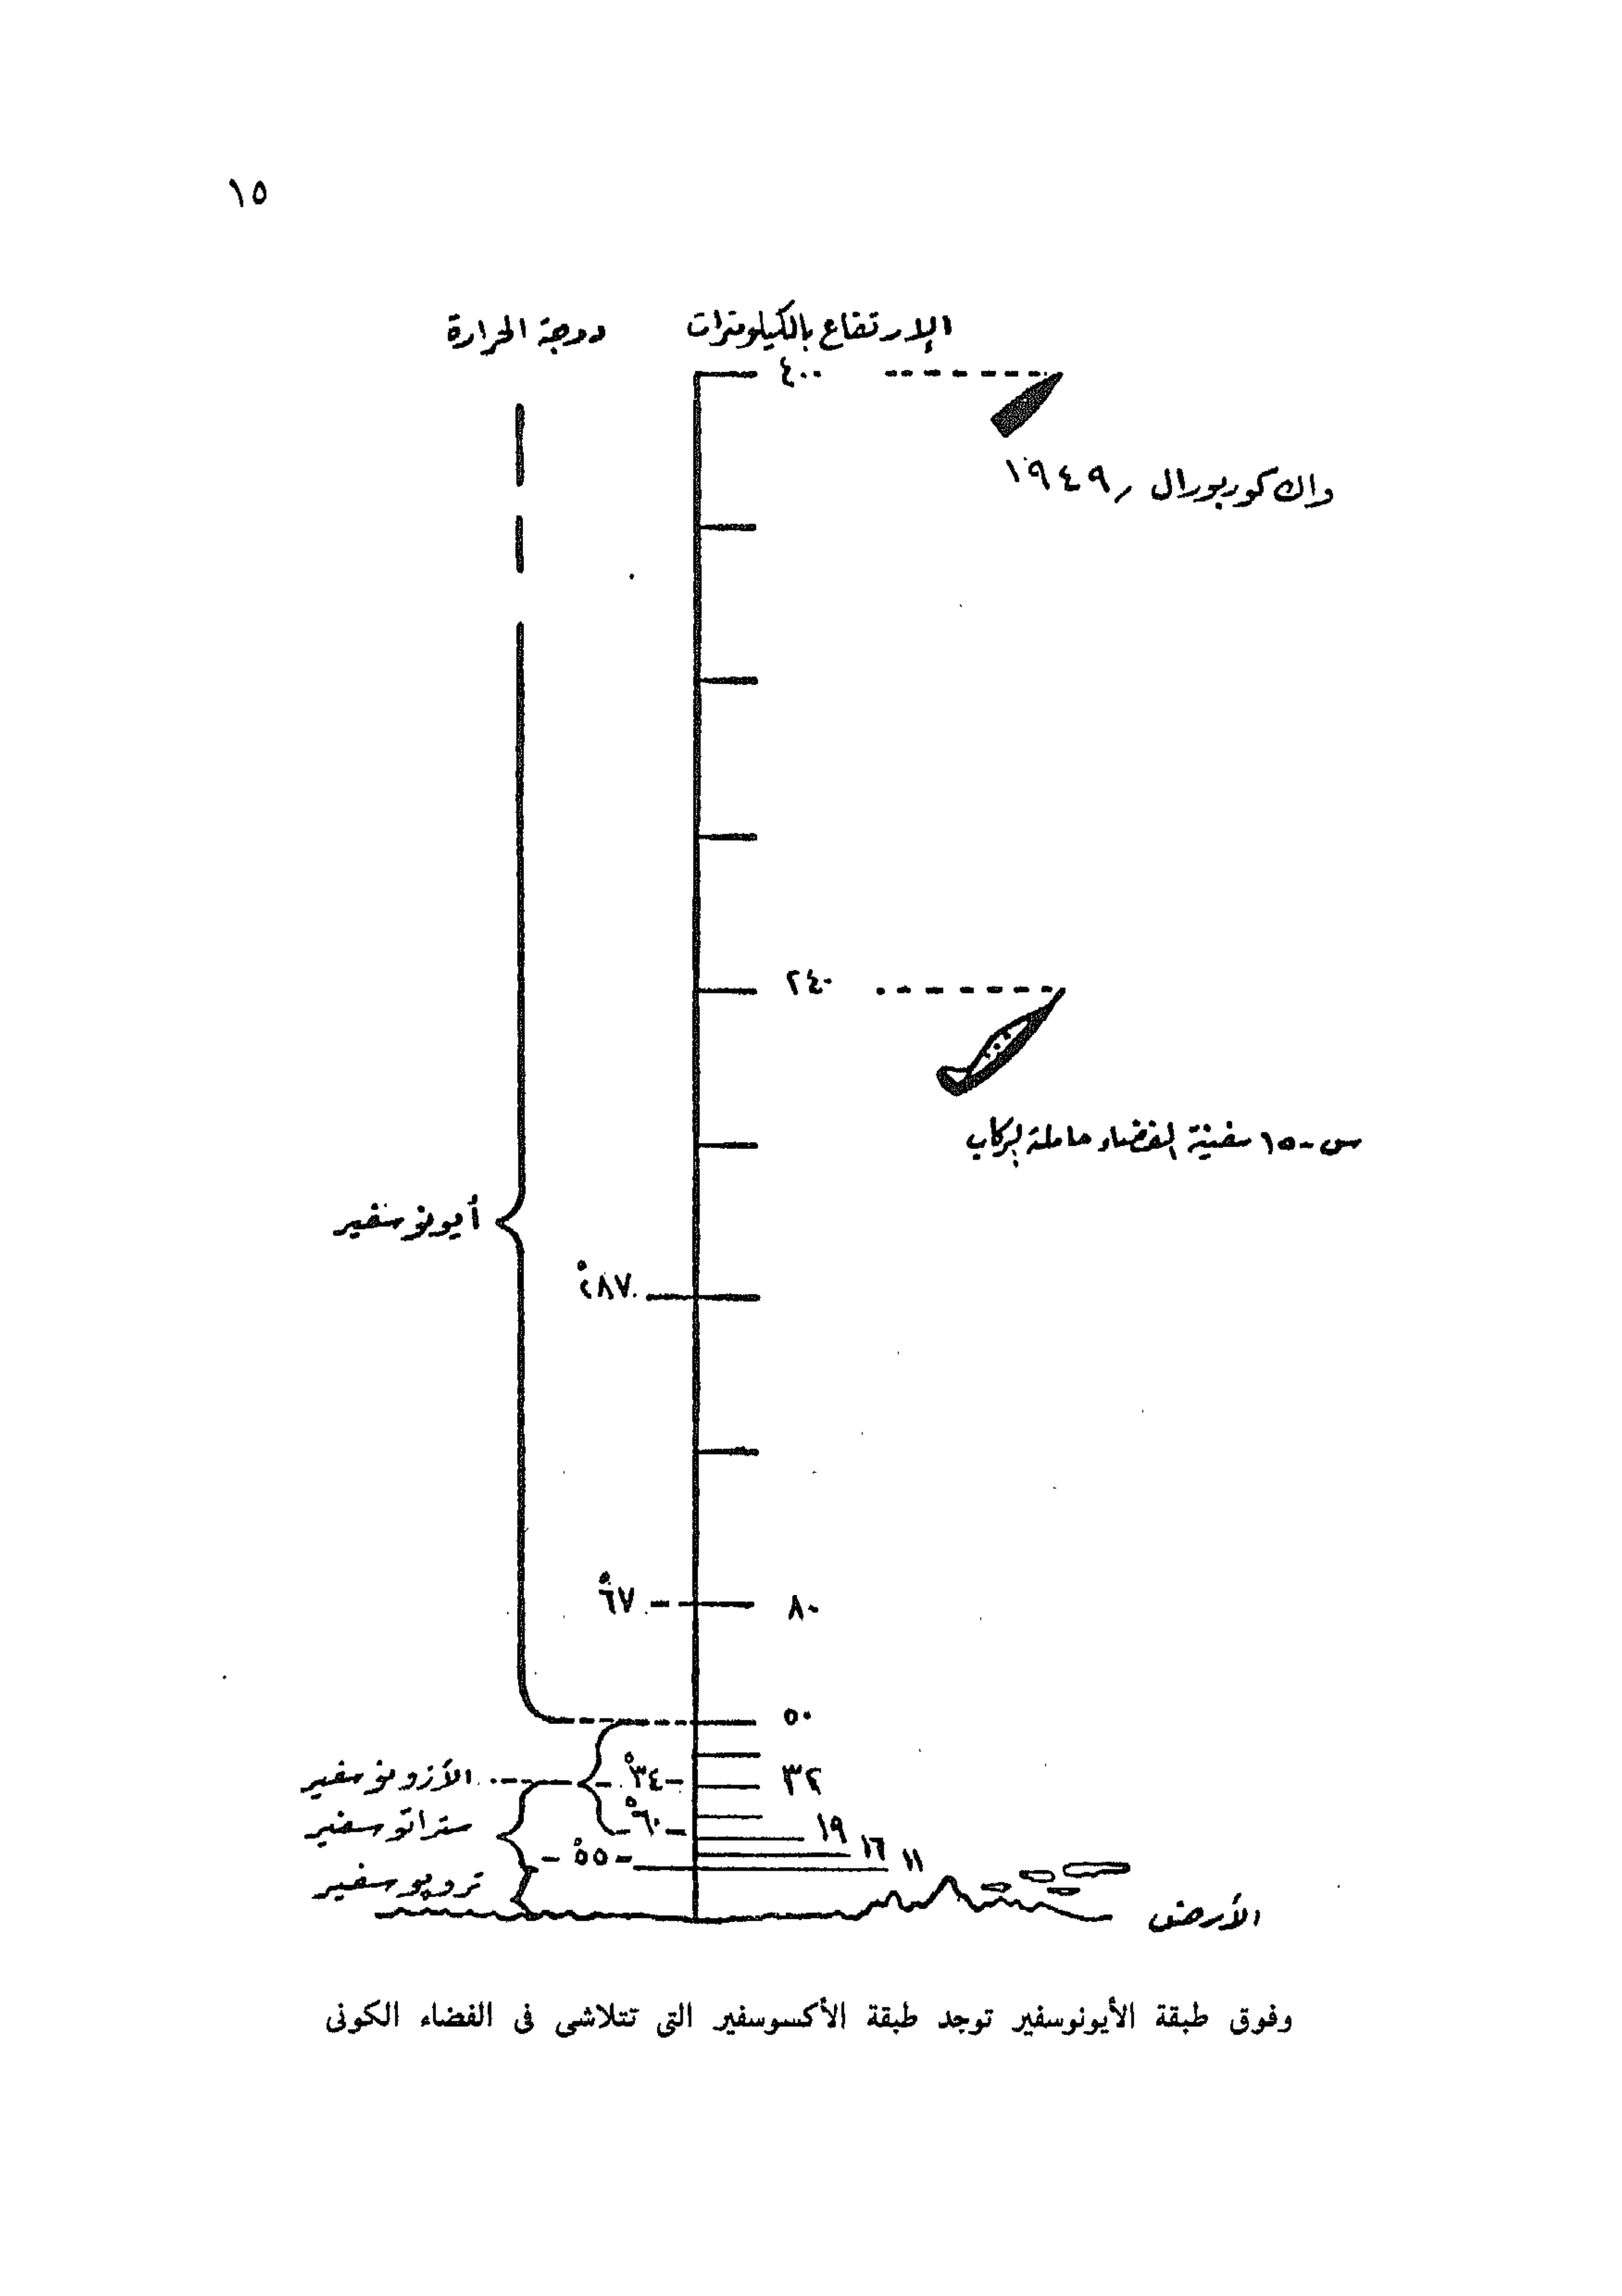 ١٥
الإرتفاع بالكيلومترات
درجة الحرارة
٤٠٠
واك كوربورال ١٩٤٩
٢٤٠
س-١٥ سفينة الفضاء حاملة الركاب
أيونوسفير
٦٧°
٨٠
٥٠
الأزونوسفير
٣٤°
٣٢
٦٠°
١٩
ستراتوسفير
١٦
٥٥°
١١
تروپوسفير
الأرض
وفوق طبقة الأيونوسفير توجد طبقة الأكسوسفير التى تتلاشى فى الفضاء الكونى